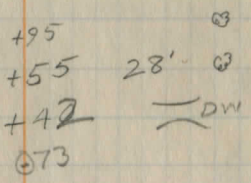 +95
+55 28'
+42 DW
⊖73